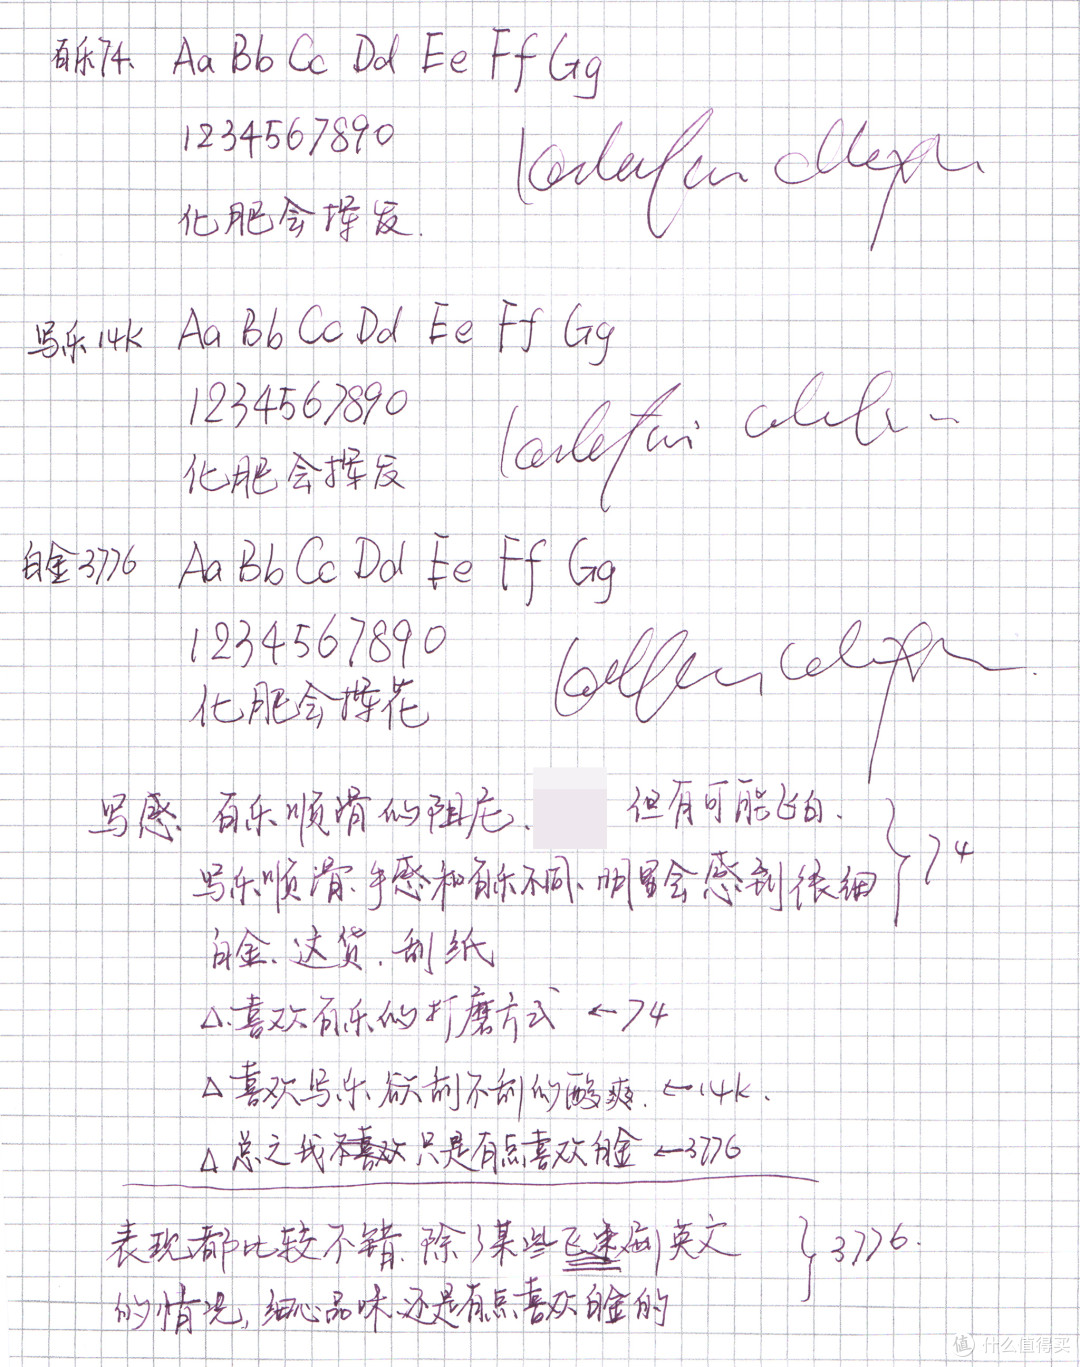 百乐74、 Aa Bb Cc Dd Ee Ff Gg
1234567890
化肥会挥发.
写乐14K Aa Bb Cc Dd Ee Ff Gg
1234567890
化肥会挥发
白金3776 Aa Bb Cc Dd Ee Ff Gg
1234567890
化肥会挥花
写感、百乐顺滑的阻尼、 但有可能飞白. } 74
写乐顺滑、手感和百乐不同、明显会感到很细
白金、这货、刮纸
△喜欢百乐的打磨方式 ←74
△喜欢写乐欲刮不刮的酸爽. ←14K.
△总之我不喜欢只是有点喜欢白金 ←3776
表现都比较不错、除了某些飞速刷英文 } 3776.
的情况, 细心品味、还是有点喜欢白金的
值 什么值得买